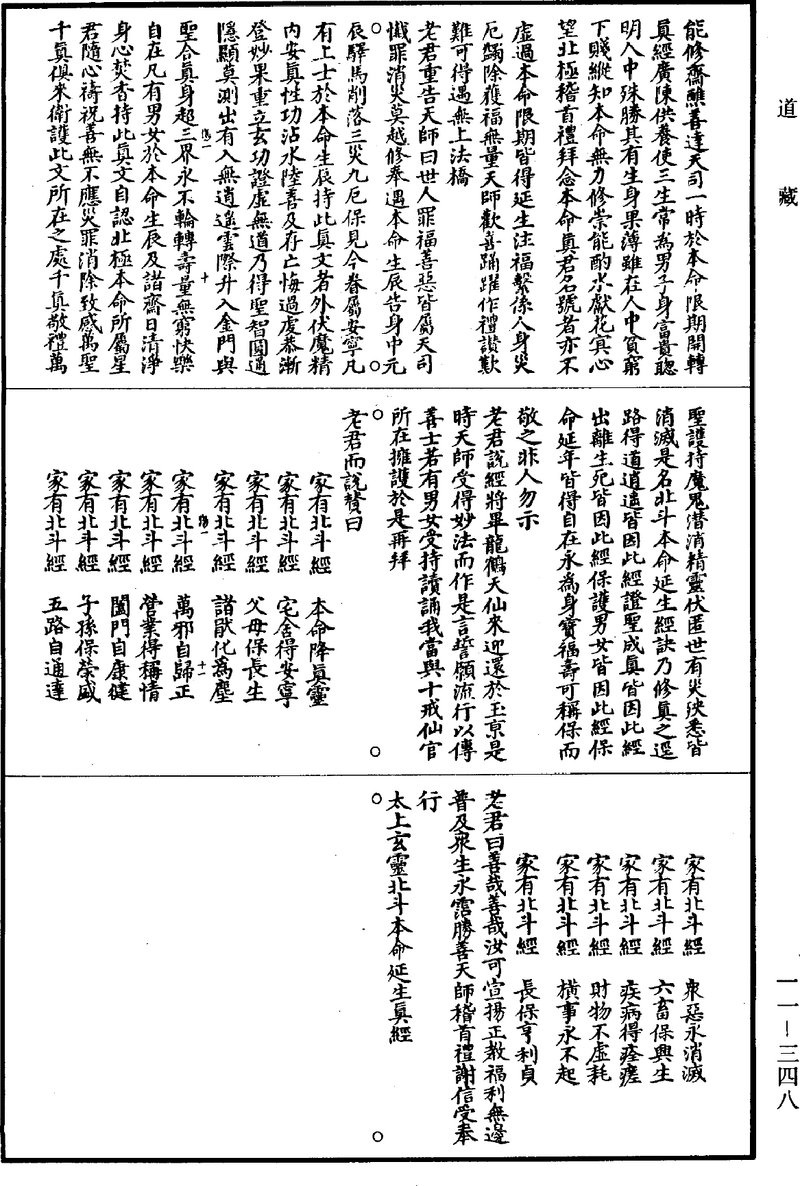 道藏
能修齋醮善達天司一時於本命限期開轉
眞經廣陳供養使三生常為男子身富貴聰
明人中殊勝其有生身果薄雖在人中貧窮
下賤縱知本命無力修崇能酌水獻花冥心
望北極稽首禮拜念本命眞君名號者亦不
虛過本命限期皆得延生注福繫係人身災
厄蠲除獲福無量天師歡喜踊躍作禮讚歎
難可得遇無上法橋
老君重告天師曰世人罪福善惡皆屬天司
懺罪消災莫越修奉遇本命生辰告身中元
辰驛馬削落三災九厄保見今眷屬安寧凡
有上士於本命生辰持此眞文者外伏魔精
內安眞性功沾水陸善及存亡悔過虔恭漸
登妙果重立玄功證虛無道乃得聖智圓通
隱顯莫測出有入無逍遙雲際升入金門與
聖合眞身超三界永不輪轉壽量無窮快樂
自在凡有男女於本命生辰及諸齋日清淨
身心焚香持此眞文自認北極本命所屬星
君隨心禱祝善無不應災罪消除致感萬聖
千眞俱來衛護此文所在之處千眞敬禮萬
十
聖護持魔鬼潛消精靈伏匿世有災殃悉皆
消滅是名北斗本命延生經訣乃修眞之逕
路得道逍遙皆因此經證聖成眞皆因此經
出離生死皆因此經保護男女皆因此經保
命延年皆得自在永為身寶福壽可稱保而
敬之非人勿示
老君說經將畢龍鶴天仙來迎還於玉京是
時天師受得妙法而作是言誓願流行以傳
善士若有男女受持讀誦我當與十戒仙官
所在擁護於是再拜
老君而說贊曰
家有北斗經 本命降眞靈
家有北斗經 宅舍得安寧
家有北斗經 父母保長生
家有北斗經 諸厭化為塵
家有北斗經 萬邪自歸正
家有北斗經 營業得稱情
家有北斗經 闔門自康健
家有北斗經 子孫保榮盛
家有北斗經 五路自通達
十一
家有北斗經 衆惡永消滅
家有北斗經 六畜保興生
家有北斗經 疾病得痊瘥
家有北斗經 財物不虛耗
家有北斗經 橫事永不起
家有北斗經 長保亨利貞
老君曰善哉善哉汝可宣揚正教福利無邊
普及衆生永霑勝善天師稽首禮謝信受奉
行
太上玄靈北斗本命延生眞經
一一—三四八